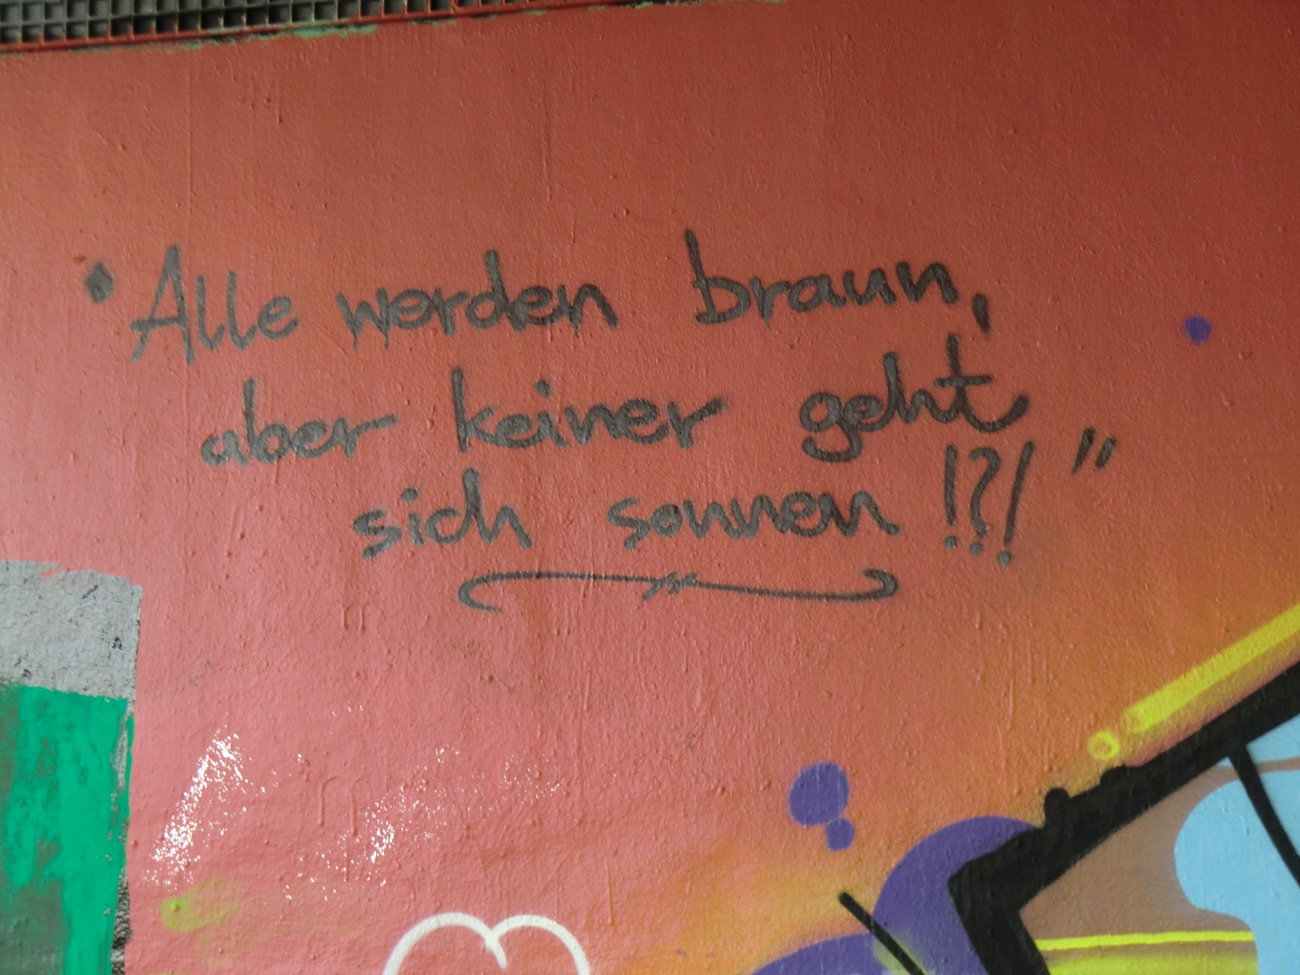 "Alle werden braun,
aber keiner geht
sich sonnen !?!"